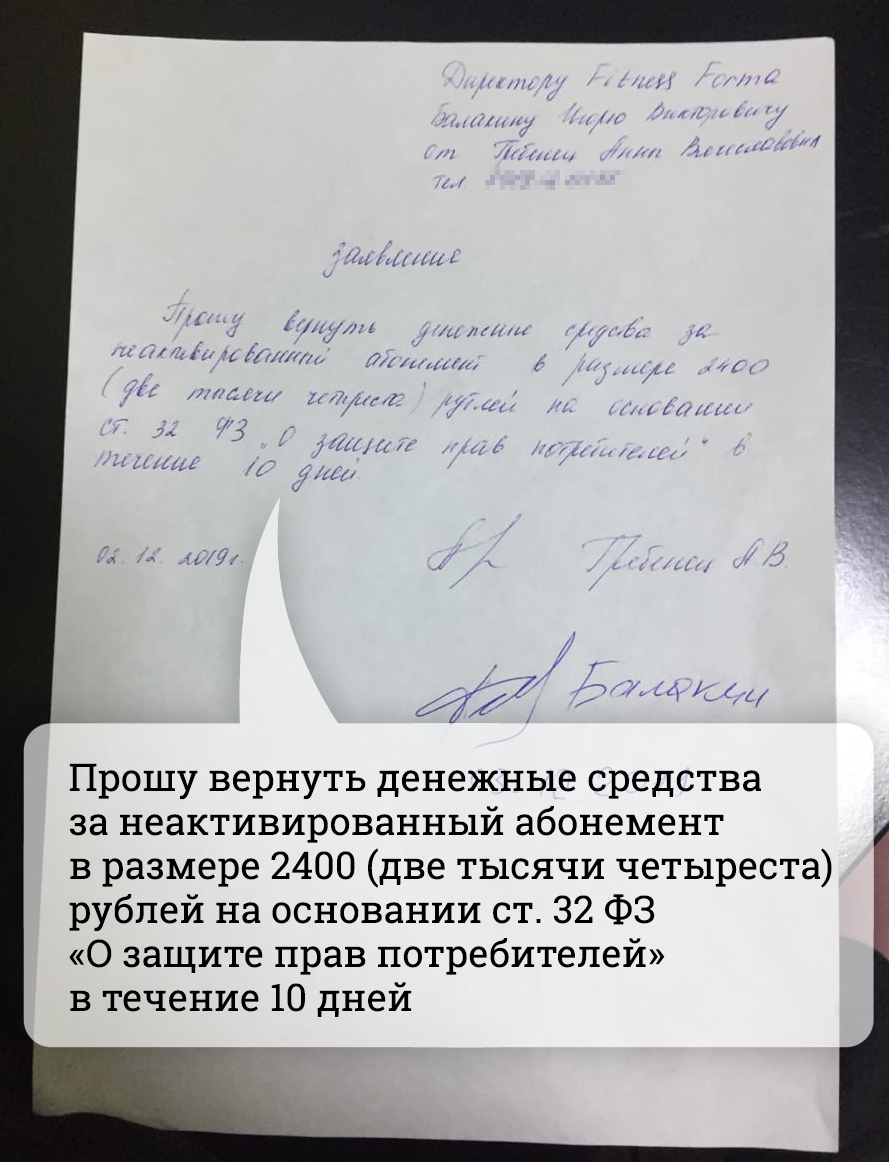 Директору Fitness Forma
Балакину Игорю Викторовичу
от Гребенец Анны Вячеславовны
тел.
Заявление
Прошу вернуть денежные средсва за
неактивированный абонемент в размере 2400
(две тысячи четреста) рублей на основании
ст. 32 ФЗ „О защите прав потребителей" в
течение 10 дней.
02. 12. 2019г.
Гребенец А.В.
Балакин
Прошу вернуть денежные средства
за неактивированный абонемент
в размере 2400 (две тысячи четыреста)
рублей на основании ст. 32 ФЗ
«О защите прав потребителей»
в течение 10 дней